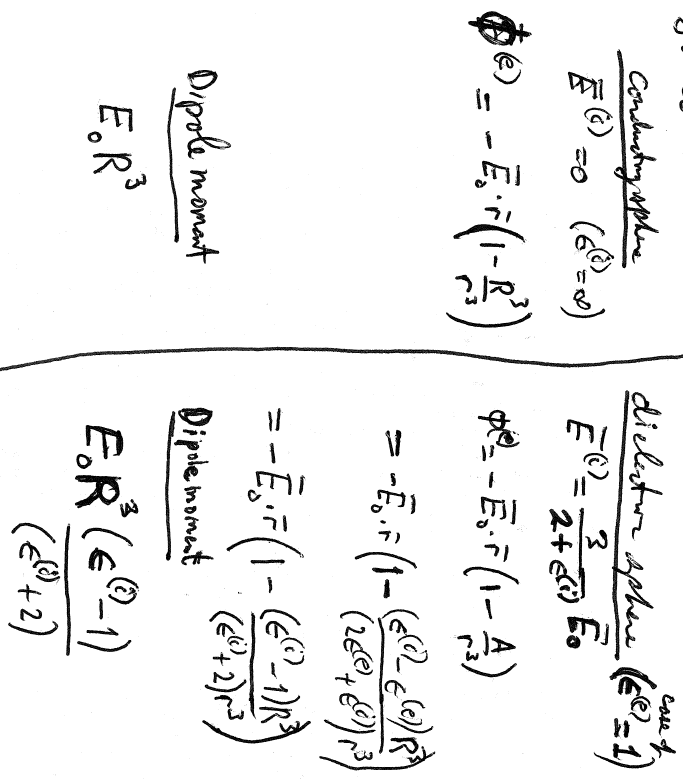 Conducting sphere
Ē⁽ⁱ⁾ = 0 (ϵ⁽ⁱ⁾ = ∞)
Φ⁽ᵉ⁾ = - Ē₀·r̄ (1 - R³/r³)
Dipole moment
E₀R³
dielectric sphere (case of ϵ⁽ᵉ⁾ = 1)
Ē⁽ⁱ⁾ = 3/(2 + ϵ⁽ⁱ⁾) Ē₀
Φ⁽ᵉ⁾ = - Ē₀·r̄ (1 - A/r³)
= - Ē₀·r̄ (1 - (ϵ⁽ⁱ⁾ - ϵ⁽ᵉ⁾)R³/(2ϵ⁽ᵉ⁾ + ϵ⁽ⁱ⁾)r³)
= - Ē₀·r̄ (1 - (ϵ⁽ⁱ⁾ - 1)R³/(ϵ⁽ⁱ⁾ + 2)r³)
Dipole moment
E₀R³ (ϵ⁽ⁱ⁾ - 1)/(ϵ⁽ⁱ⁾ + 2)